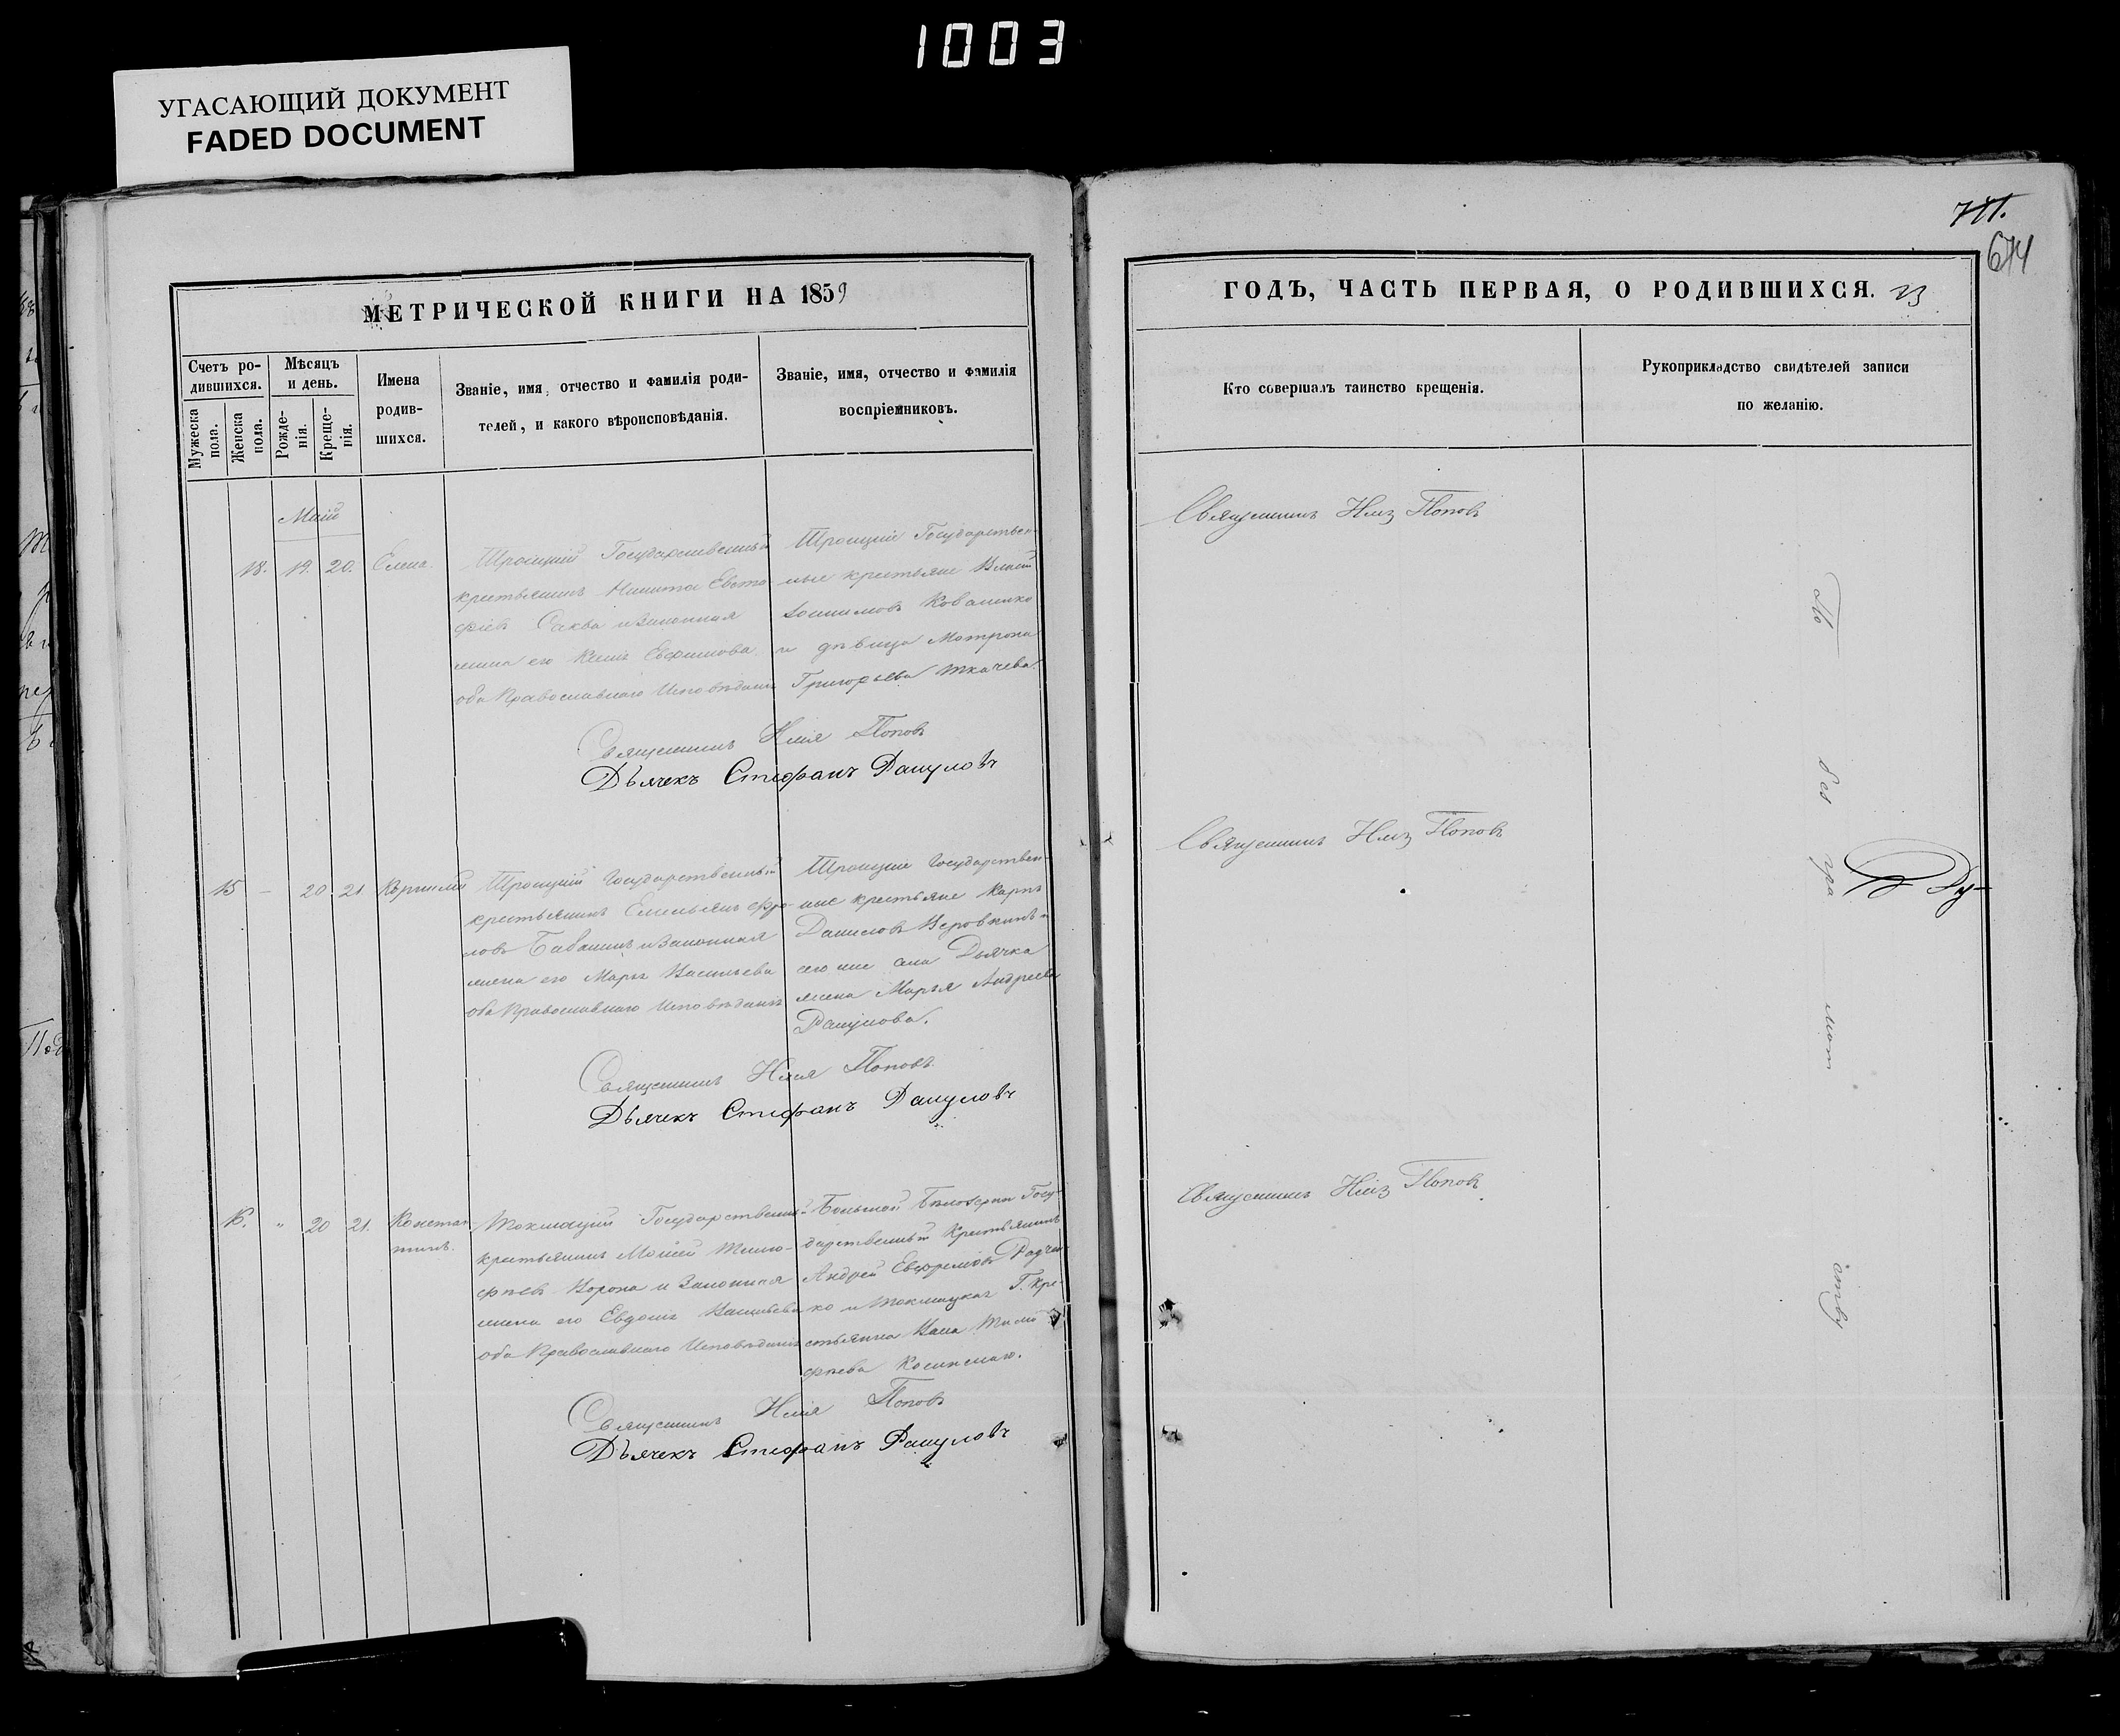 1003
УГАСАЮЩИЙ ДОКУМЕНТ
FADED DOCUMENT
МЕТРИЧЕСКОЙ КНИГИ НА 1859
Счетъ ро-
дившихся.
Мужеска
пола.
Женска
пола.
Мѣсяцъ
и день.
Рожде-
нія.
Креще-
нія.
Имена
родив-
шихся.
Званіе, имя, отчество и фамилія роди-
телей, и какого вѣроисповѣданія.
Званіе, имя, отчество и фамилія
воспріемниковъ.
Маій
18. 19. 20. Елена.
Троицкій Государственный
крестьянинъ Никита Евста-
фіевъ и законная
жена его
оба Православнаго Исповѣданія
Троицкіе Государствен-
ные крестьяне
Коваленко
и дѣвица Матрона
Григорьева Ткачева.
Священникъ Илія Поповъ
Дьячекъ Стефанъ Рашуловъ
15 – 20 21 Корнилій
Троицкій Государственный
крестьянинъ Емельянъ Фро-
ловъ и законная
жена его Марья Васильева
оба Православнаго Исповѣданія
Троицкіе Государствен-
ные крестьяне Карпъ
Даниловъ и
Дьячка
жена Марья Андреева
Рашулова.
Священникъ Илія Поповъ.
Дьячекъ Стефанъ Рашуловъ
16. " 20 21. Констан-
тинъ.
Токмацкій Государственный
крестьянинъ Моисей Тимо-
фѣевъ Ворона и законная
жена его Евдокія Васильева
оба Православнаго Исповѣданія
Большой Бѣлозерки Госу-
дарственный крестьянинъ
Андрей Ефремовъ Радчен-
ко и Токмацкая Г. кре-
стьянка Тимо-
фѣева
Священникъ Илія Поповъ
Дьячекъ Стефанъ Рашуловъ
711.
674
ГОДЪ, ЧАСТЬ ПЕРВАЯ, О РОДИВШИХСЯ. 23
Кто совершалъ таинство крещенія.
Рукоприкладство свидѣтелей записи
по желанію.
Священникъ Илія Поповъ
Священникъ Илія Поповъ
Священникъ Илія Поповъ
По
без
гра
мот
ству